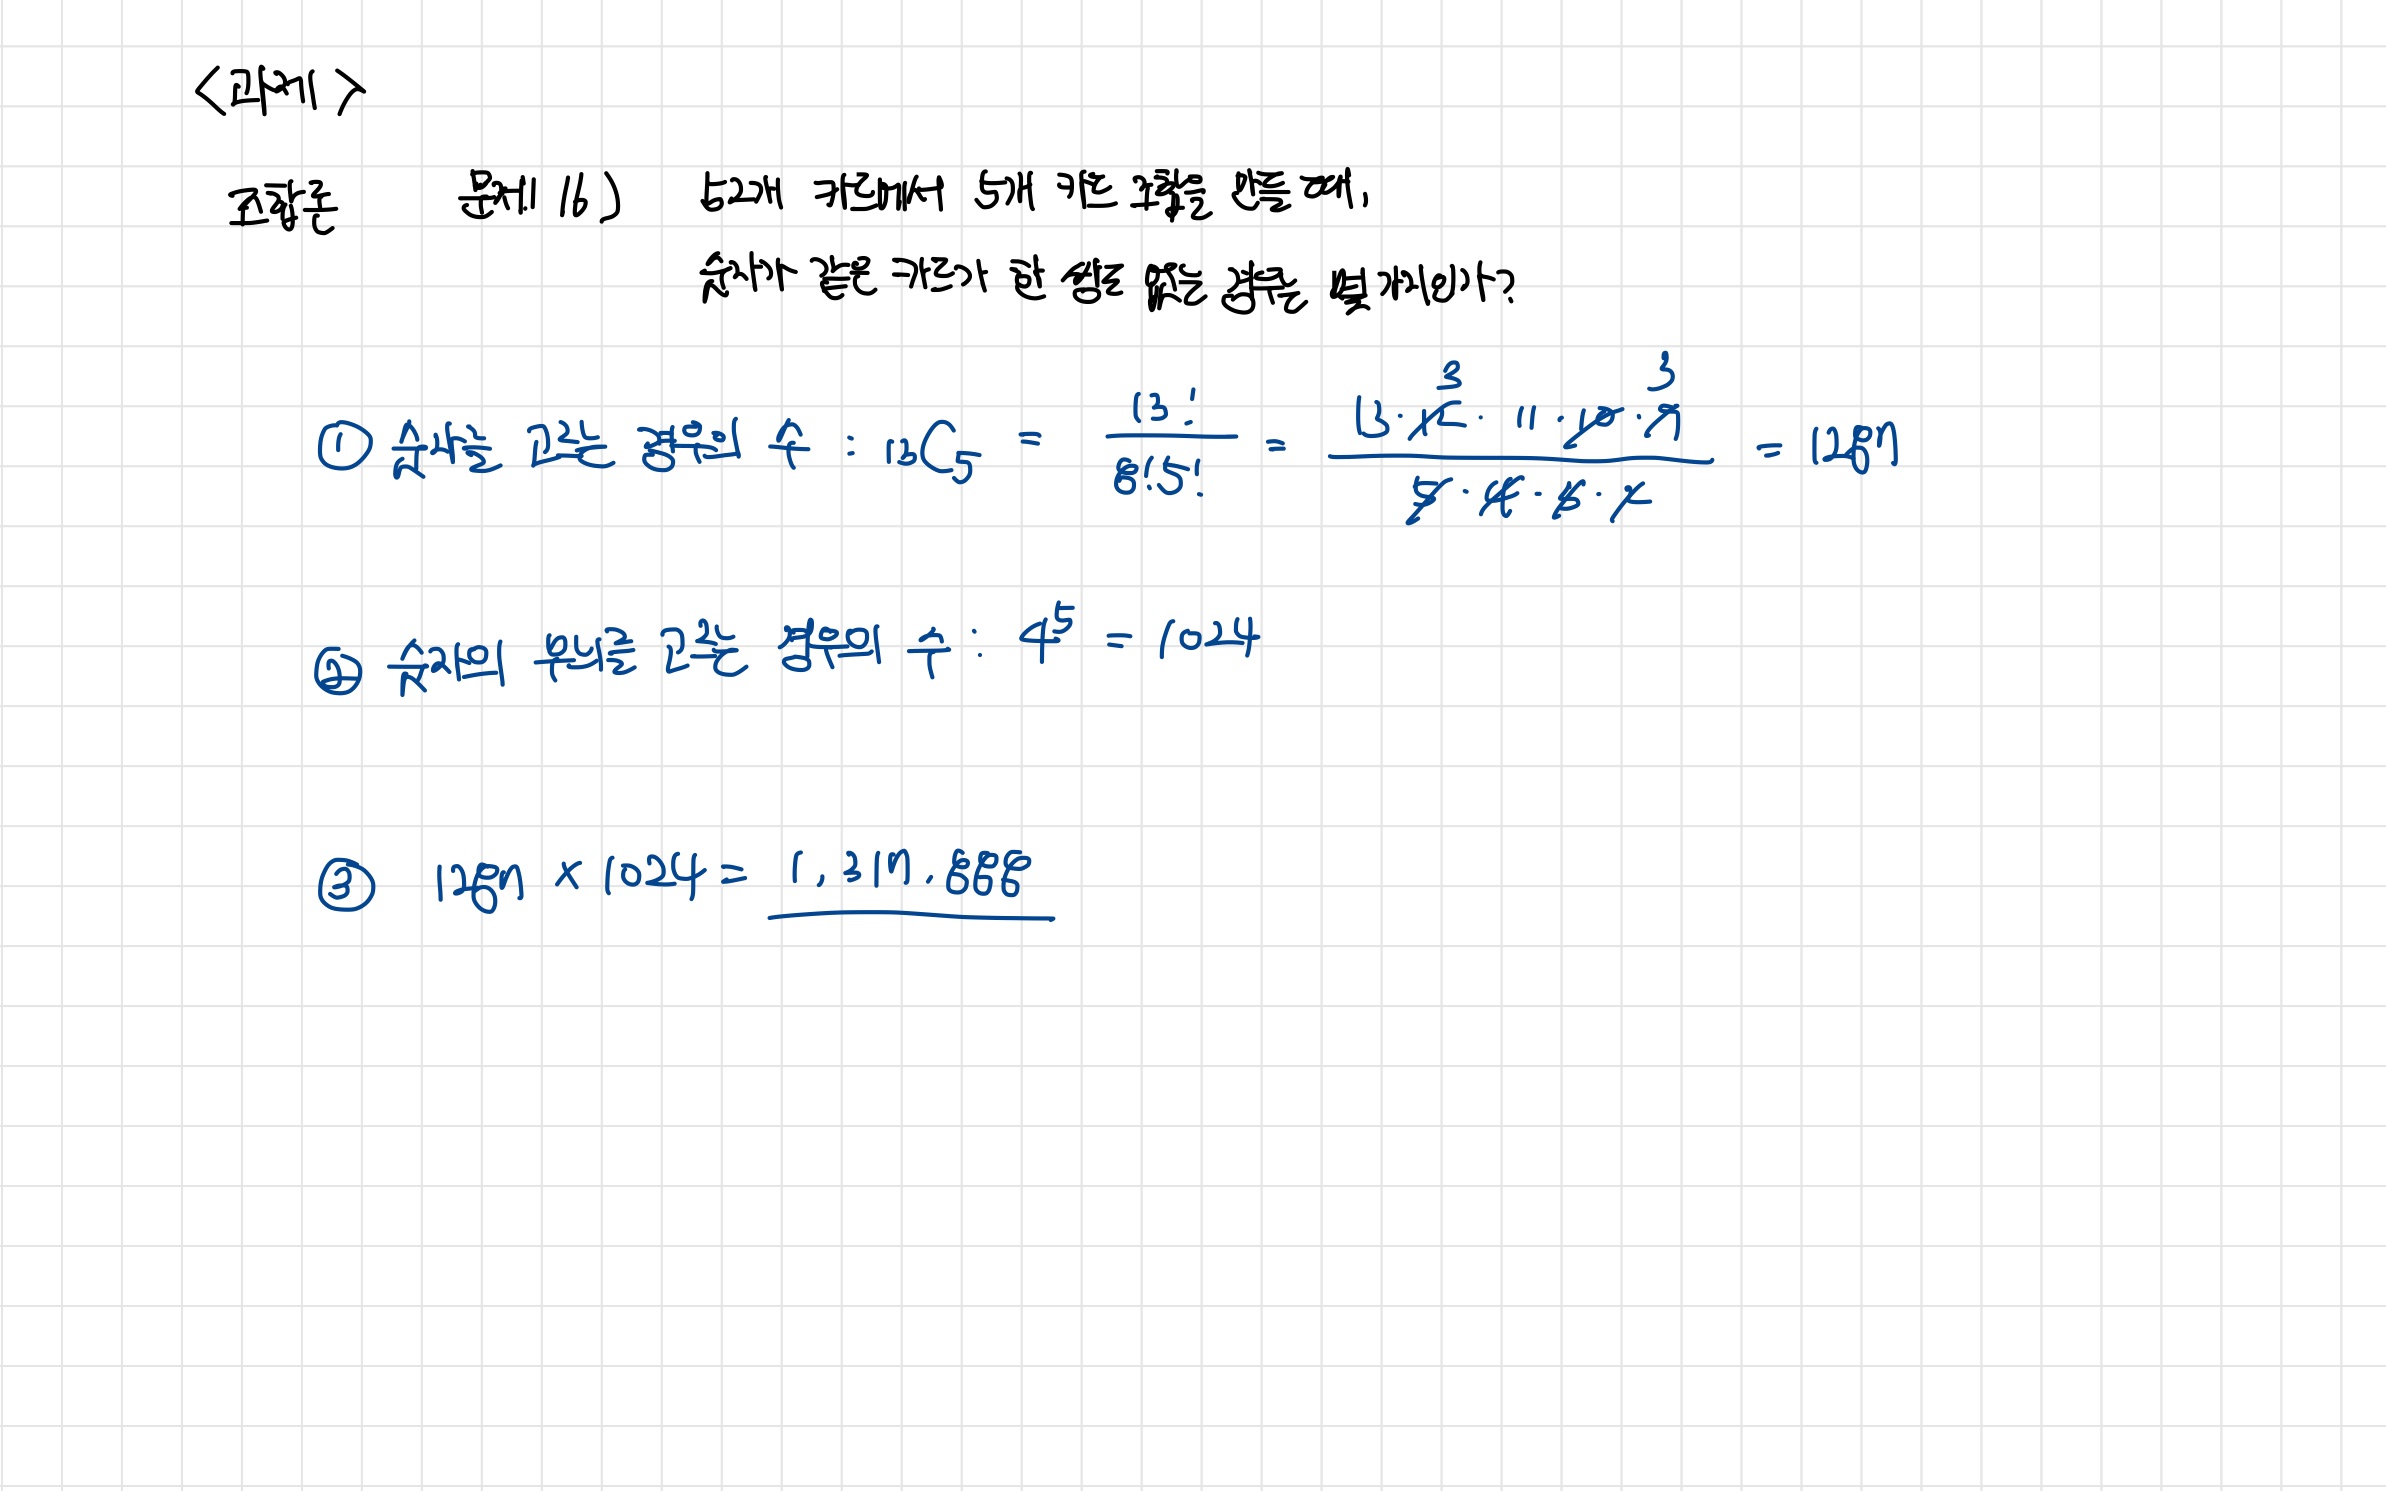 <과제>
조합론 문제 16) 52장 카드에서 5장 카드 조합을 만들 때,
숫자가 같은 카드가 한 쌍도 없는 경우는 몇가지인가?
① 숫자를 고르는 경우의 수 : 13C5 = 13! / 8!5! = 13·12·11·10·9 / 5·4·3·2 = 1287
3 3
② 숫자의 무늬를 고르는 경우의 수 : 4^5 = 1024
③ 1287 × 1024 = 1,317,888